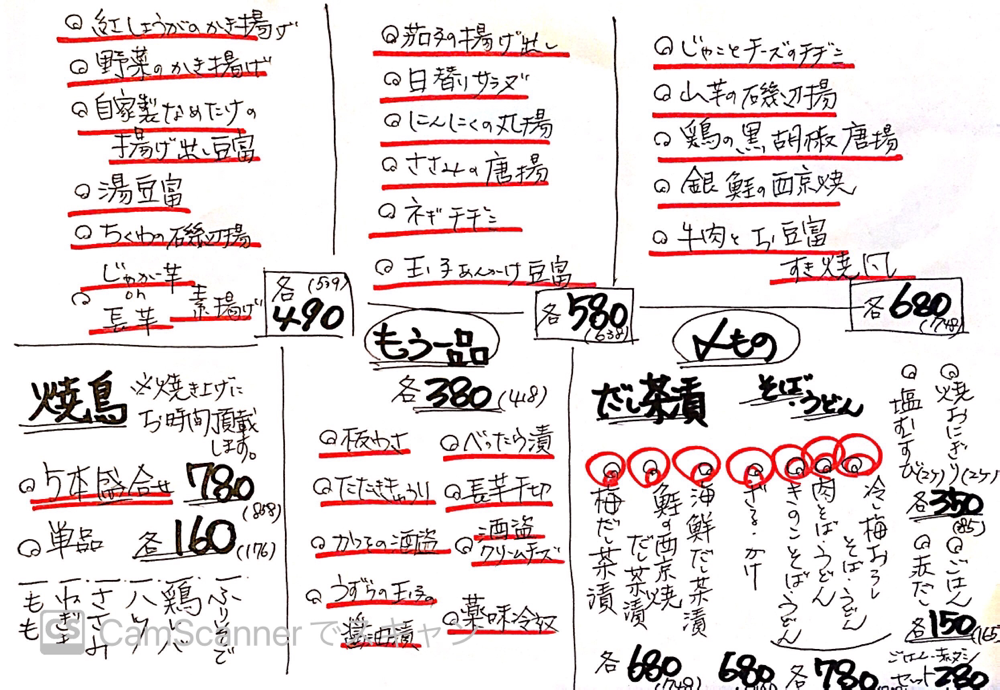 紅しょうがのかき揚げ
野菜のかき揚げ
自家製なめたけの
揚げ出し豆富
湯豆富
ちくわの磯辺揚
じゃが芋
or
長芋
素揚げ
各(539)
490
茄子の揚げ出し
日替りサラダ
にんにくの丸揚
ささみの唐揚
ネギチヂミ
玉子あんかけ豆富
各580
(638)
じゃことチーズのチヂミ
山芋の磯辺揚
鶏の黒胡椒唐揚
銀鮭の西京焼
牛肉とお豆富
すき焼風
各680
(748)
焼鳥
※焼き上げに
お時間頂載
します。
5本盛合せ 780
(858)
単品 各160(176)
ふりそで
鶏ハツ
ハラミ
ささみ
ねぎま
もも
もう一品
各380(418)
板わさ
べったら漬
たたききゅうり
長芋千切
かつおの酒盗
酒盗
クリームチーズ
うずらの玉子の
醤油漬
薬味冷奴
〆もの
だし茶漬
そば・うどん
梅だし茶漬
鮭の西京焼
だし茶漬
海鮮だし茶漬
各680
(748)
ざる・かけ
680
きのこそば・うどん
肉そば・うどん
冷し梅おろし
そば・うどん
各780
焼おにぎり(2ケ)
塩むすび(2ケ)
各350
(385)
ごはん
赤だし
各150(165)
ごはん・赤ダシ
セット280
CS CamScanner でスキャン